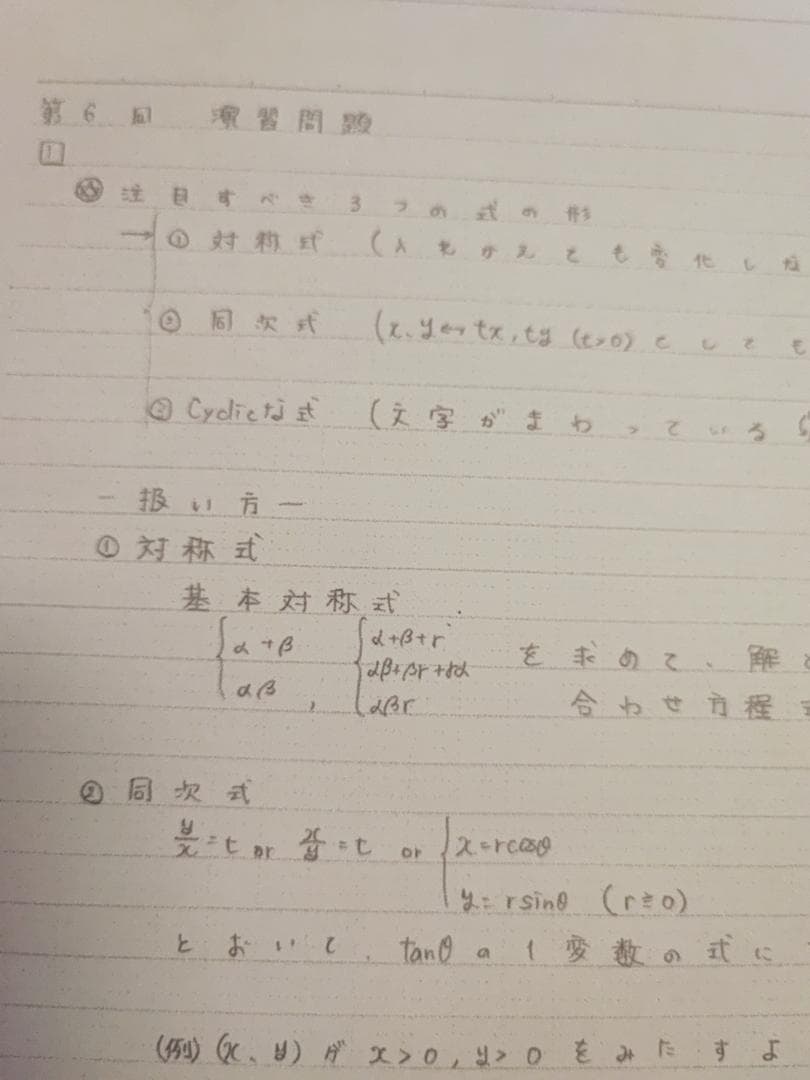 第6回 演習問題
1
注目すべき3つの式の形
→① 対称式 (入れかえても変化しな
② 同次式 (x、y↔tx,ty (t>0)としても
③ Cyclicな式 (文字がまわっている
－扱い方－
① 対称式
基本対称式
{α+β {α+β+γ を求めて、解
αβ+βγ+γα
αβ , αβγ 合わせ方程
② 同次式
y/x=t or x/y=t or {x=rcosθ
y=rsinθ (r≧0)
とおいて、tanθの1変数の式に
(例) (x、y)が x>0,y>0をみたすよ